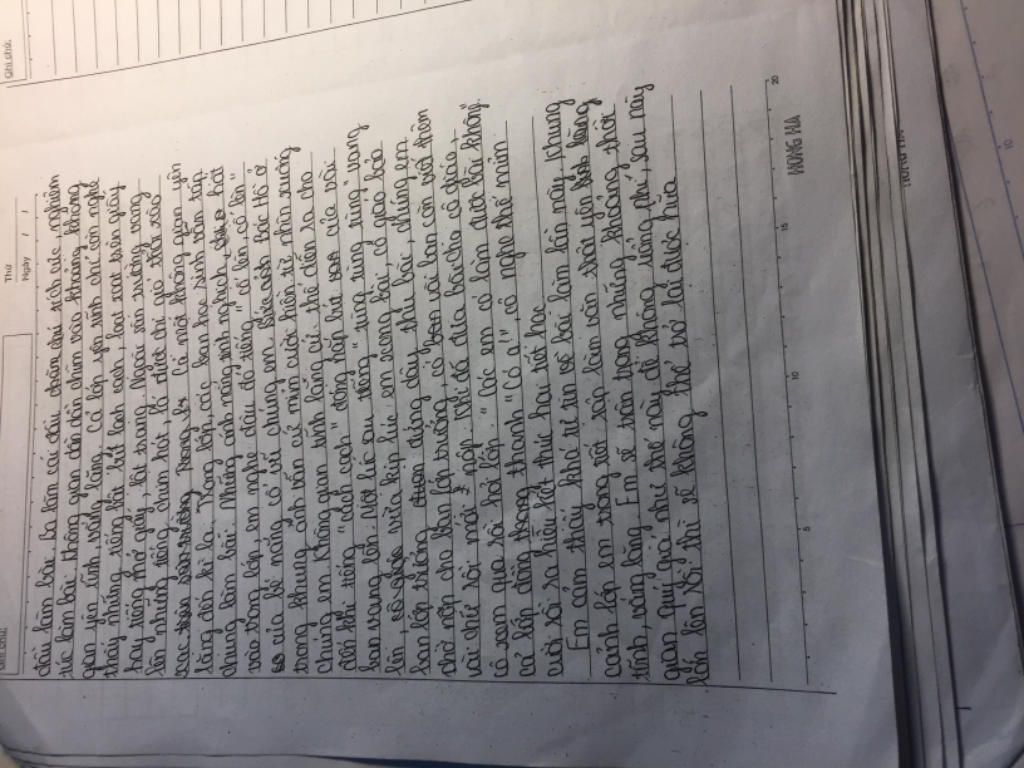 Ghi chú:
Thứ
Ngày / /
đều làm bài. Ba lần cái đài đoán
tục làm bài. Thông gian dần dần chìm vào khoảng không
gian yên tĩnh vắng lặng. Cả lớp yên tĩnh chỉ còn nghe
thấy những tiếng bút sột soạt trên giấy
hay tiếng thở dài, lật trang. Ngoài sân trường vang
lên những tiếng chim hót, lá
Cả một không gian yên
lặng đến kì lạ. Trong lớp, các bạn học sinh vẫn tập
chung làm bài. Những ánh nắng tinh nghịch
vào trong lớp, em nghe đâu đó tiếng "cố lên cố lên"
của bé nắng cổ vũ chúng em. Bức ảnh Bác Hồ ở
trong khung ảnh vẫn cứ mỉm cười hiền từ nhìn xuống
chúng em. Không gian tĩnh lặng cứ thế diễn ra cho
đến khi tiếng "lạch cạch" đóng nắp bút của vài
bạn vang lên. Một lúc sau tiếng "tùng tùng tùng" vang
lên, vừa kịp lúc em xong bài, cô giáo bảo
bạn lớp trưởng đứng dậy thu bài, chúng em
nhờ nộp cho bạn lớp trưởng, có vài bạn còn viết thêm
vài chữ rồi mới nộp. Khi đã đưa bài cho cô giáo,
cô xem qua rồi hỏi lớp: "Các em có làm được bài không?"
cả lớp đồng thanh "Có ạ!" cô nghe thế mỉm
cười rồi ra hiệu kết thúc hai tiết học.
Em cảm thấy khá tự tin về bài làm lần này. Khung
cảnh lớp em trong giờ tập làm văn thật yên
tĩnh, vắng lặng. Em sẽ trân trọng những khoảng thời
gian quý giá như thế này để không uổng phí, sau này
lớn lên rồi thì sẽ không thể trở lại được nữa.
5
10
15
20
HONG HA
10